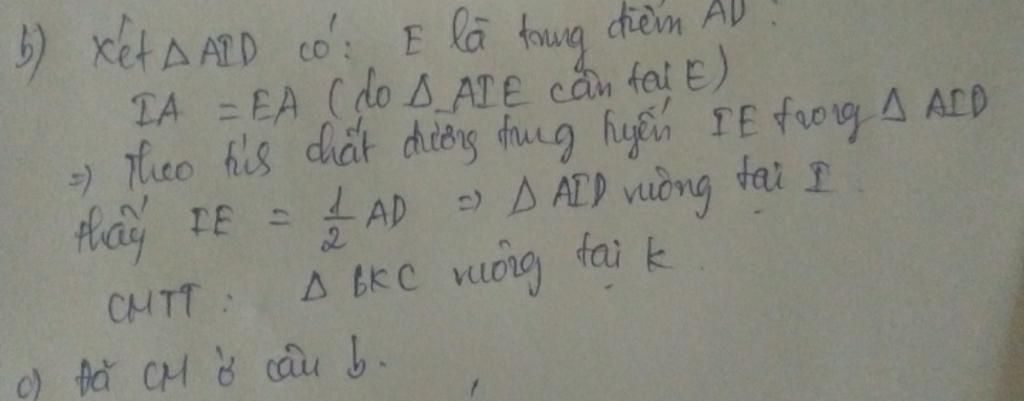 b) Xét Δ AID có: E là trung điểm AD.
IA = EA (do Δ AIE cân tại E)
=> Theo t/c chất đường trung tuyến IE trong Δ AID
thấy IE = 1/2 AD => Δ AID vuông tại I.
CMTT: Δ BKC vuông tại k.
c) Đã CM ở câu b.